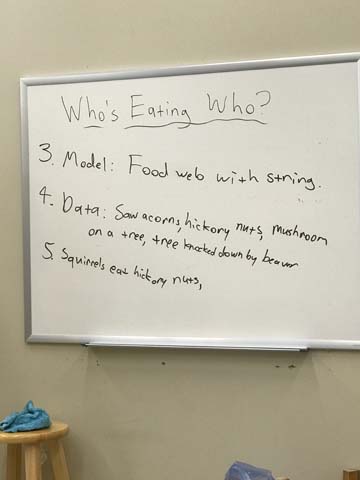 Who's Eating Who?
3. Model: Food web with string.
4. Data: Saw acorns, hickory nuts, mushroom
on a tree, tree knocked down by beaver
5. Squirrels eat hickory nuts,